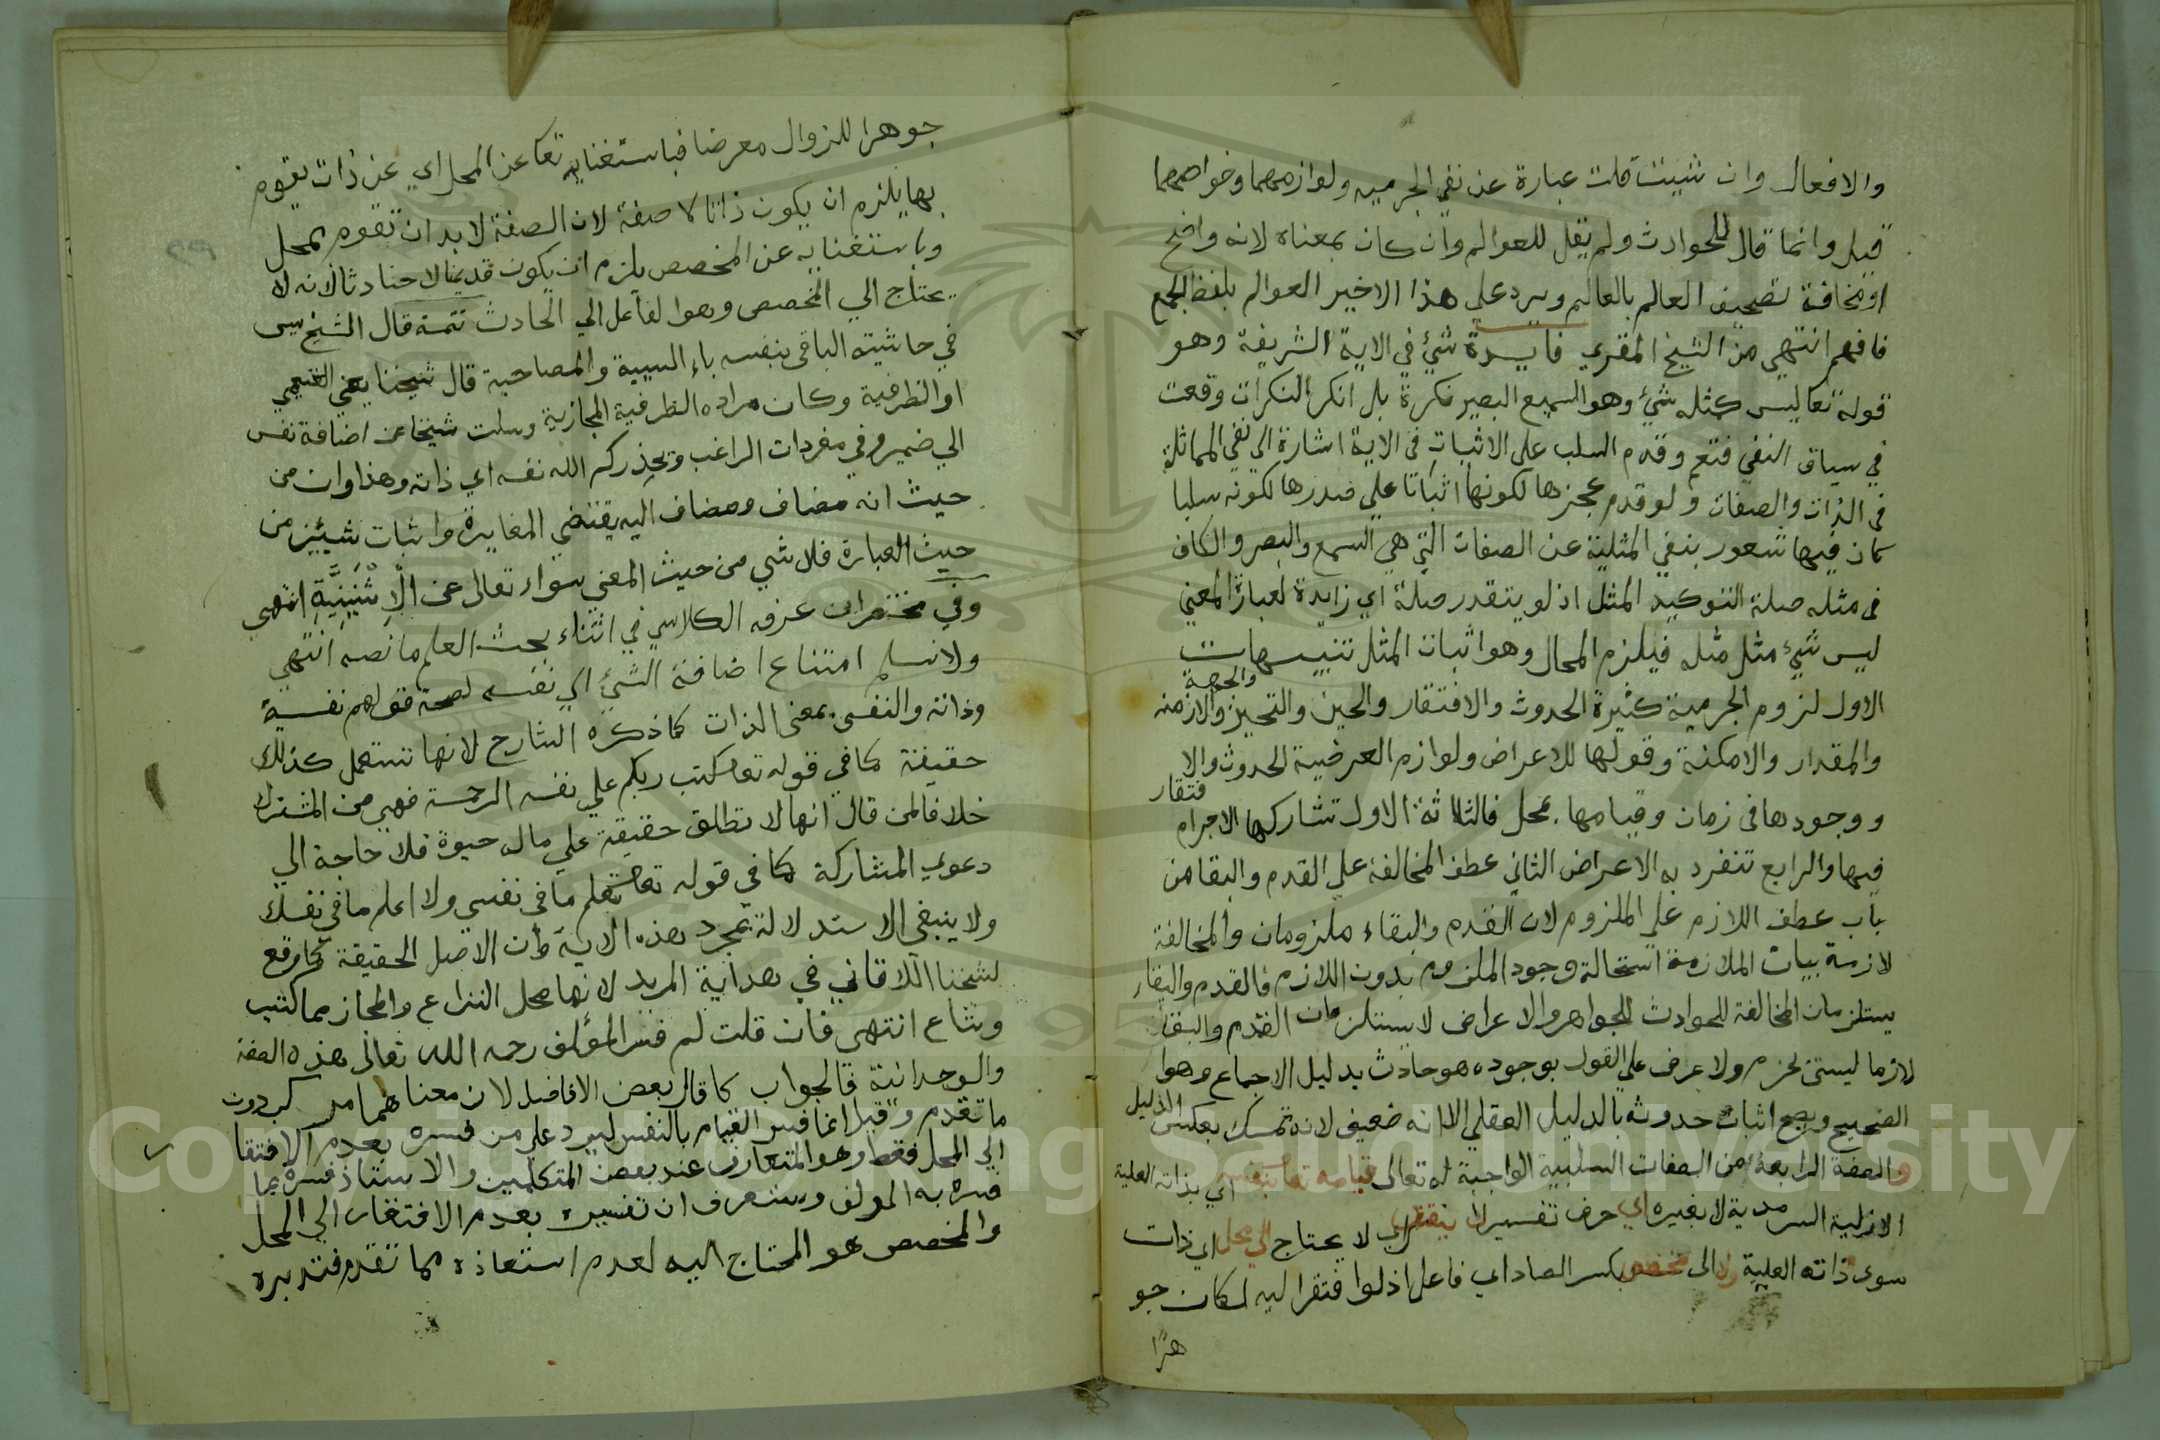 والافعال وان شيئت قلت عبارة عن نفي الجرميه ولوازمهما وخواصهما
قيل وانما قال للحوادث ولم يقل للعوالم وان كان بمعناه لانه واضح
او مخافة تصحيف العالم بالعالم ويرد على هذا الاخير العوالم بلفظ الجمع
فافهم انتهى من الشيخ المقري فايدة شيئ في الاية الشريفة وهو
قوله تعا ليس كمثله شيئ وهو السميع البصير نكرة بل انكر النكرات وقعت
في سياق النفي فتعم وقدم السلب على الاثبات في الاية اشارة الى نفي المماثلة
في الذات والصفات ولو قدم عجزها لكونها اثباتا علي صدرها لكونه سلبا
كان فيها شعور بنفي المثلية عن الصفات التي هي السمع والبصر والكاف
في مثله صلة التوكيد المثل اذ لو يتقدر صلة اي زايدة لعبارة المعني
ليس شيئ مثل مثله فيلزم المحال وهو اثبات المثل تنبيهات
والجهة
الاول لزوم الجرمية كثيرة الحدوث والافتقار والحين والتحيز والازمنه
والمقدار والامكنة وقولها للاعراض ولوازم العرضية الحدوث والا
فتقار
ووجودها في زمان وقيامها بمحل فالثلاثة الاول تشاركها الاجرام
فيها والرابع تنفرد به الاعراض الثاني عطف المخالفة علي القدم والبقا من
باب عطف اللازم علي الملزوم لان القدم والبقاء ملزومان والمخالفة
لازمة بيان الملازمة استحالة وجود الملزوم بدون اللازم فالقدم والبقاء
يستلزمان المخالفة للحوادث للجواهر والاعراض لا يستلزمان القدم والبقاء
لازما ليستى لجزم ولا عرف علي القول بوجوده هو حادث بدليل الاجماع وهوا
الصحيح ويصح اثبات حدوثه بالدليل العقلي الا انه ضعيف لانه تمسك بعكس الدليل
والصفة الرابعة من الصفات السلبية الواجبة له تعالى قيامه تعا بنفسه اي بذاته العلية
الازلية السرمدية لا بغيره اي حرف تفسير لا يفتقر اي لا يحتاج الي محل اي ذات
سوى ذاته العلية ولا الى مخصص بكسر الصاد اي فاعل اذ لو افتقر اليه لكان جو
هرًا
جوهرا للزوال معرضا فباستغنايه تعا عن المحل اي عن ذات يقوم
بها يلزم ان يكون ذاتا لا صفة لان الصفة لا بد ان تقوم بمحل
وباستغنايه عن المخصص يلزم ان يكون قديما لا حادثا لانه لا
يحتاج الي المخصص وهوا لفاعل الي الحادث تتمة قال الشيخ يس
في حاشيته الباقي بنفسه باء السببية والمصاحبة قال شيخنا يعني الغنيمي
او الظرفية وكان مراده الظرفية المجازية وسلت شيخنا عن اضافة نفس
الي ضميره وفي مفردات الراغب ويحذركم الله نفسه اي ذاته وهذا وان من
حيث انه مضاف ومضاف اليه يقتضي المغايرة واثبات شيئين من
حيث العبارة فلا شي من حيث المعنى سواه تعالى عن الاثنينية انتهى
وفي مختصر ابن عرفه الكلامي في اثناء بحث العلم ما نصه انتهي
ولا نسلم امتناع اضافة الشيئ الي نفسه لصحة قولهم نفسه
وذاته والنفس بمعنى الذات كما ذكره الشارح لانها تستعمل كذلك
حقيقة كما في قوله تعا كتب ربكم علي نفسه الرحمة فهي من المشترك
خلافا لمن قال انها لا تطلق حقيقة علي ماله حيوة فلا حاجة الي
دعوي المشاركة كما في قوله تعا تعلم ما في نفسي ولا اعلم ما في نفسك
ولا ينبغي الاستدلالة بمجرد هذه الاية وان الاصل الحقيقة كما وقع
لشيخنا اللاقاني في هداية المريد لانها محل النزاع والمجاز مما كتب
وشاع انتهى فان قلت لم فسر المؤلف رحمه الله تعالى هذه الصفة
والوحدانية فالجواب كما قال بعض الافاضل لان معناهما دون
ما تقدم وقيل انما فسر القيام بالنفس ليرد علي من فسره بعدم الافتقا
الي المحل فقط وهو المتعارف عند بعض المتكلمين والاستناذ فسره بما
فسره به المولف ويستعرف ان تفسيره بعدم الافتقار الي المحل
والمخصص هو المحتاج اليه لعدم استفاذه مما تقدم فتدبره